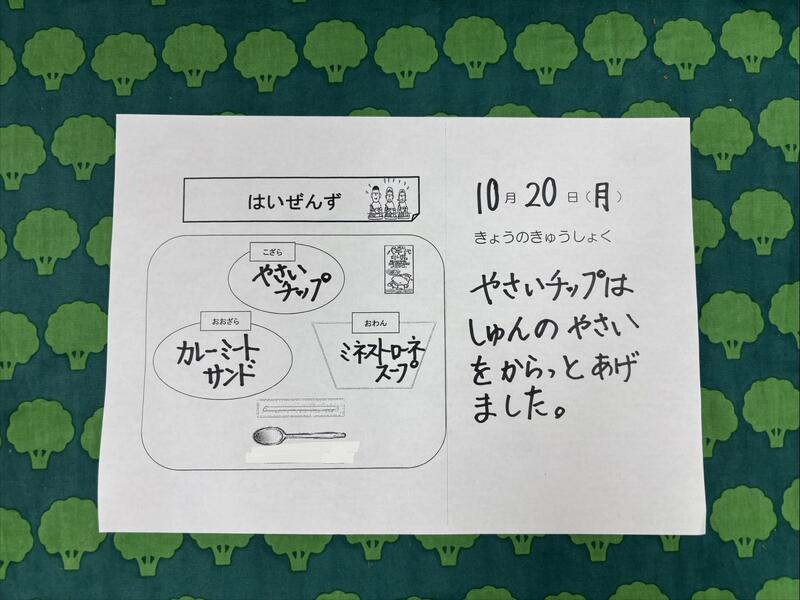 はいぜんず
こざら
やさい
チップ
おおざら
カレーミート
サンド
おわん
ミネストローネ
スープ
10月20日(月)
きょうのきゅうしょく
やさいチップは
しゅんのやさい
をからっとあげ
ました。